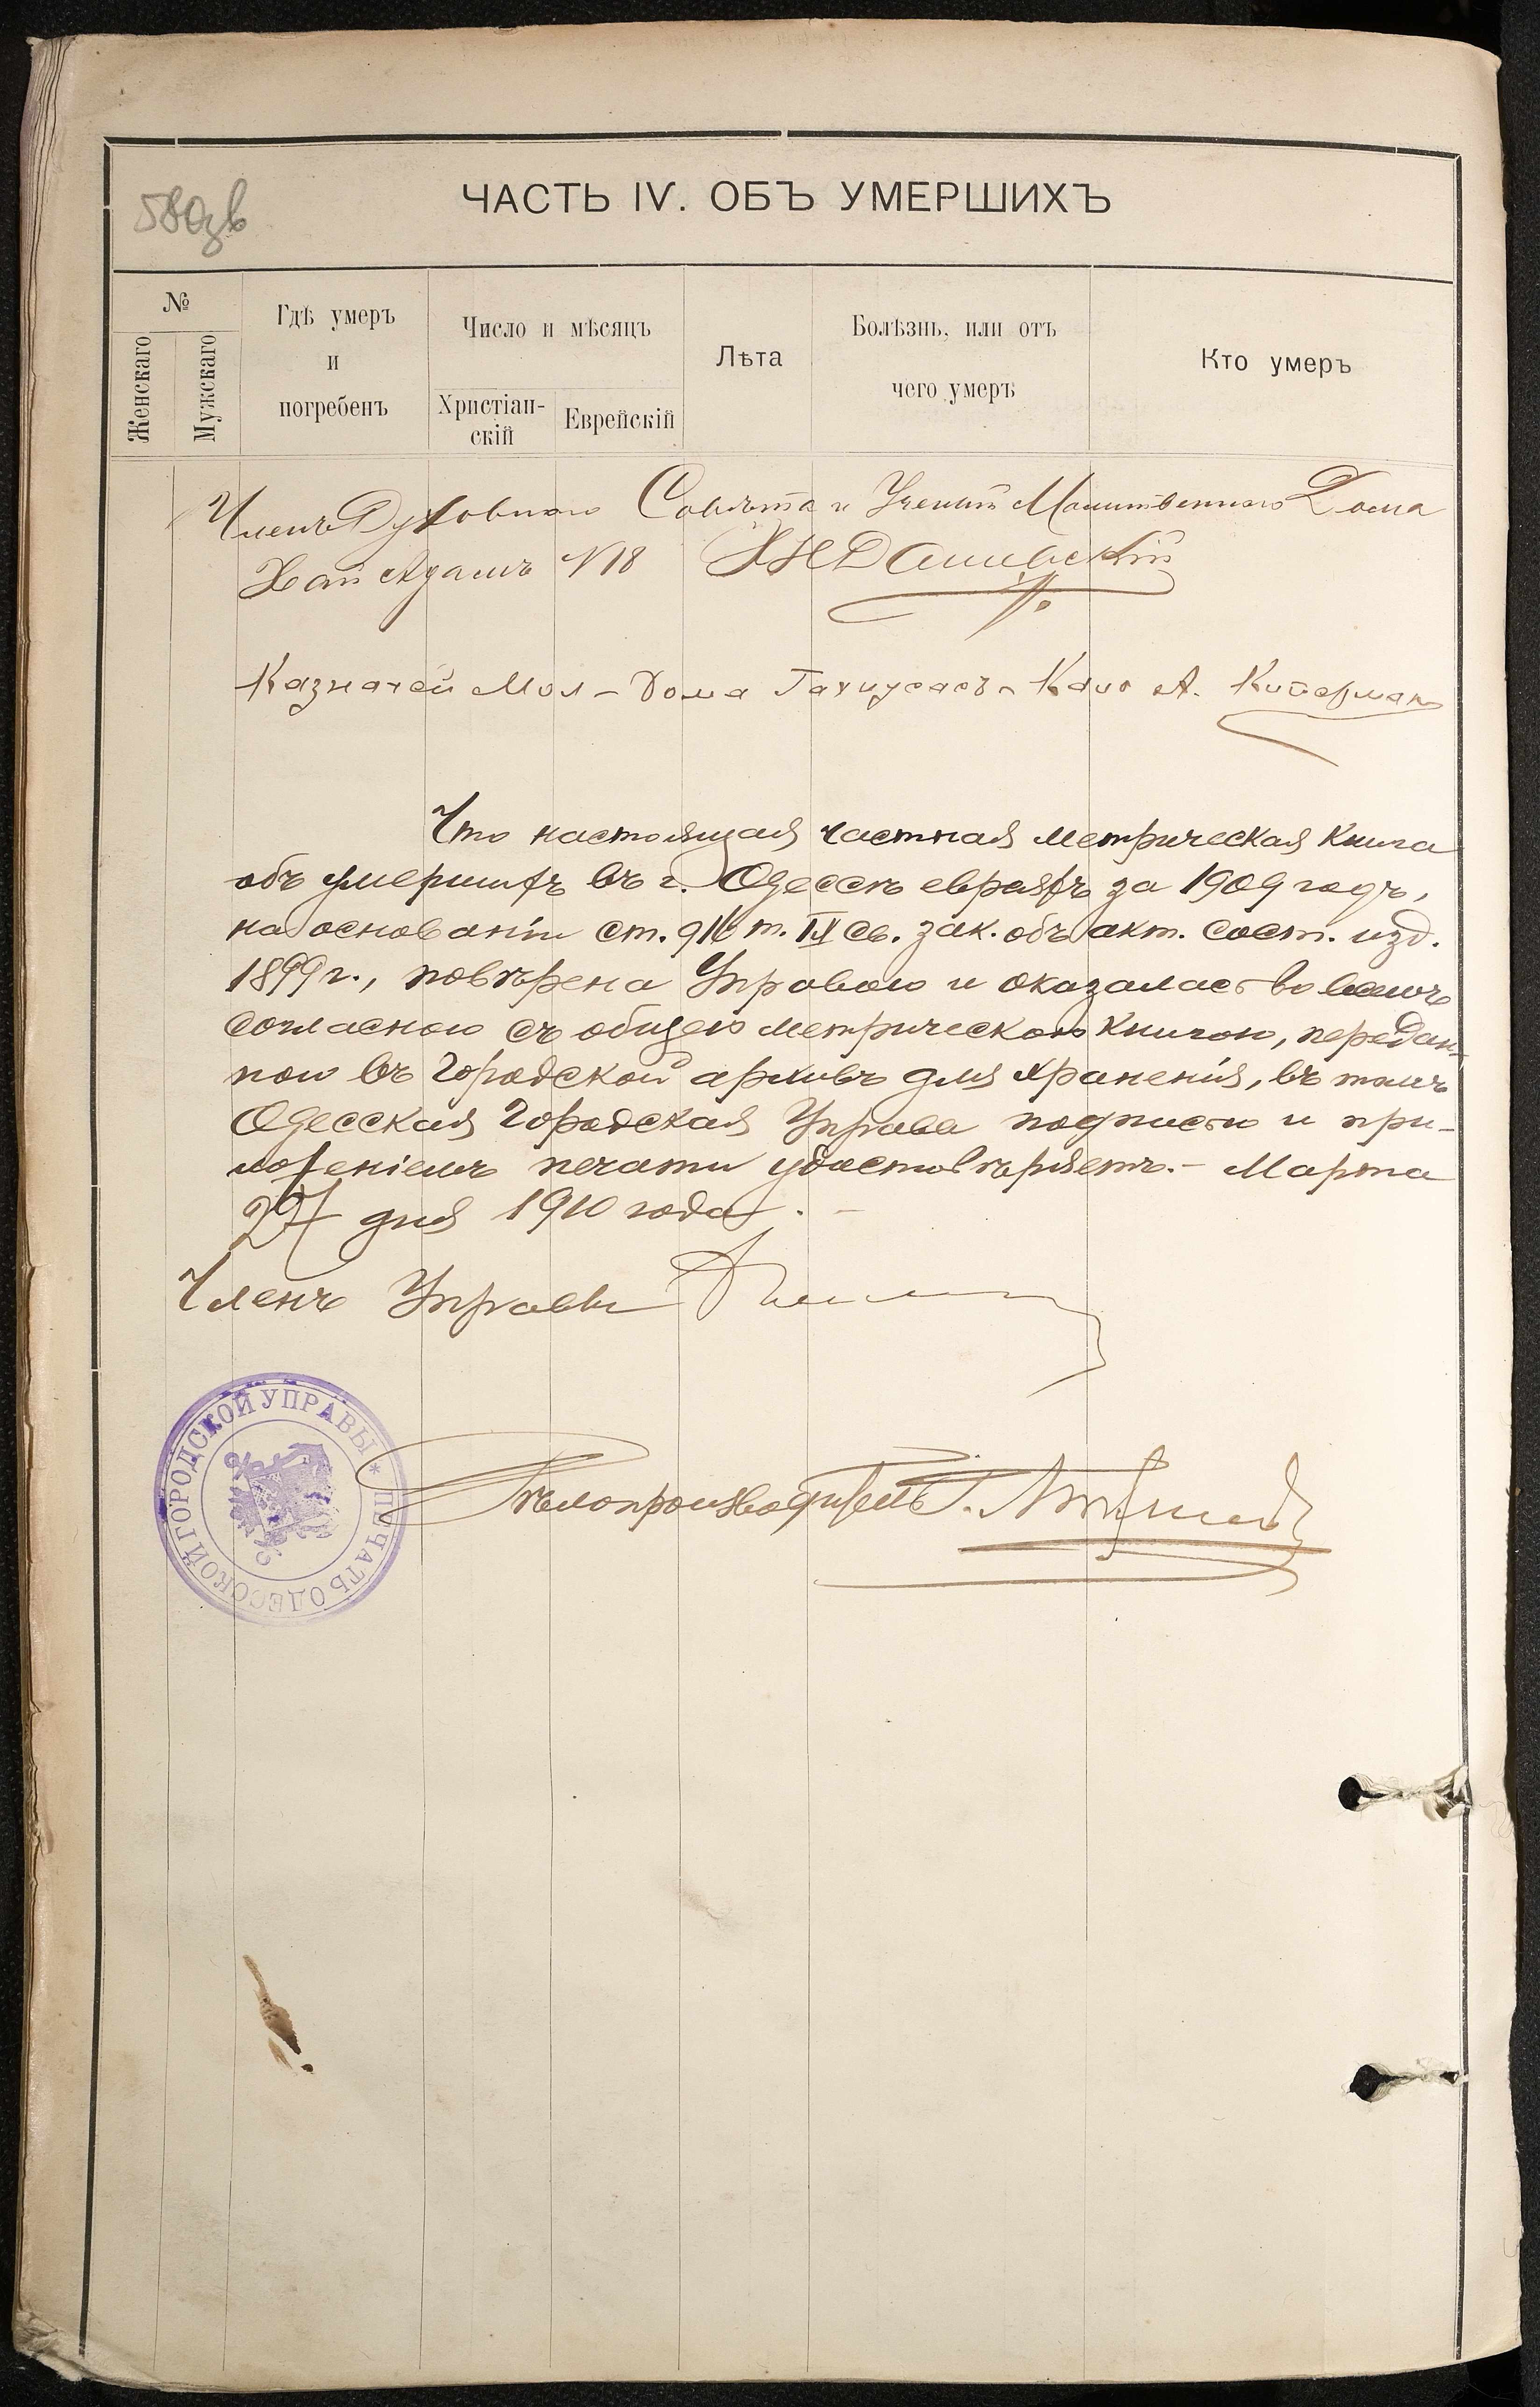 580зв
ЧАСТЬ IV. ОБЪ УМЕРШИХЪ
№
Женскаго
Мужскаго
Гдѣ умеръ
и
погребенъ
Число и мѣсяцъ
Христіан-
скій
Еврейскій
Лѣта
Болѣзнь, или отъ
чего умеръ
Кто умеръ
Членъ Духовнаго Совѣта и Ученый Молитвеннаго Дома
Хай Адамъ №18
Казначей Мол-Дома А. Кийсрман
Что настоящая частная метрическая книга
объ умершихъ въ г. Одессѣ евреяхъ за 1909 годъ,
на основаніи ст. т. IX св. зак. объ акт. сост. изд.
1899 г., повѣрена Управою и оказалась во всемъ
согласною съ общею метрическою книгою, передан-
ною въ городской архивъ для храненія, въ томъ
Одесская Городская Управа подписью и при-
ложеніемъ печати удостовѣряетъ. - Марта
27 дня 1910 года. -
Членъ Управы
ПЕЧАТЬ ОДЕССКОЙ ГОРОДСКОЙ УПРАВЫ *
Дѣлопроизводитель